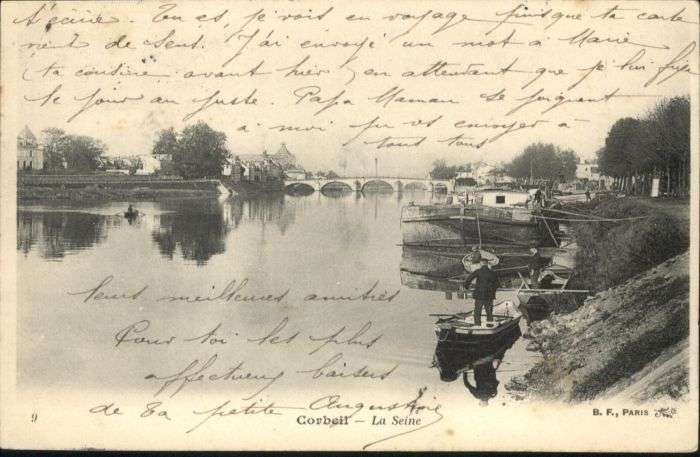 t'écrire. Tu es, je vois en voyage puisque ta carte
vient de Sens. J'ai envoyé un mot à Marie
ta cousine avant hier, en attendant que je lui fixe
le jour au juste. Papa Maman se joignent
à moi pr vs envoyer à
tous tous
leurs meilleures amitiés
Pour toi les plus
affectueux baisers
de ta petite Augustine
9
Corbeil – La Seine
B. F., PARIS